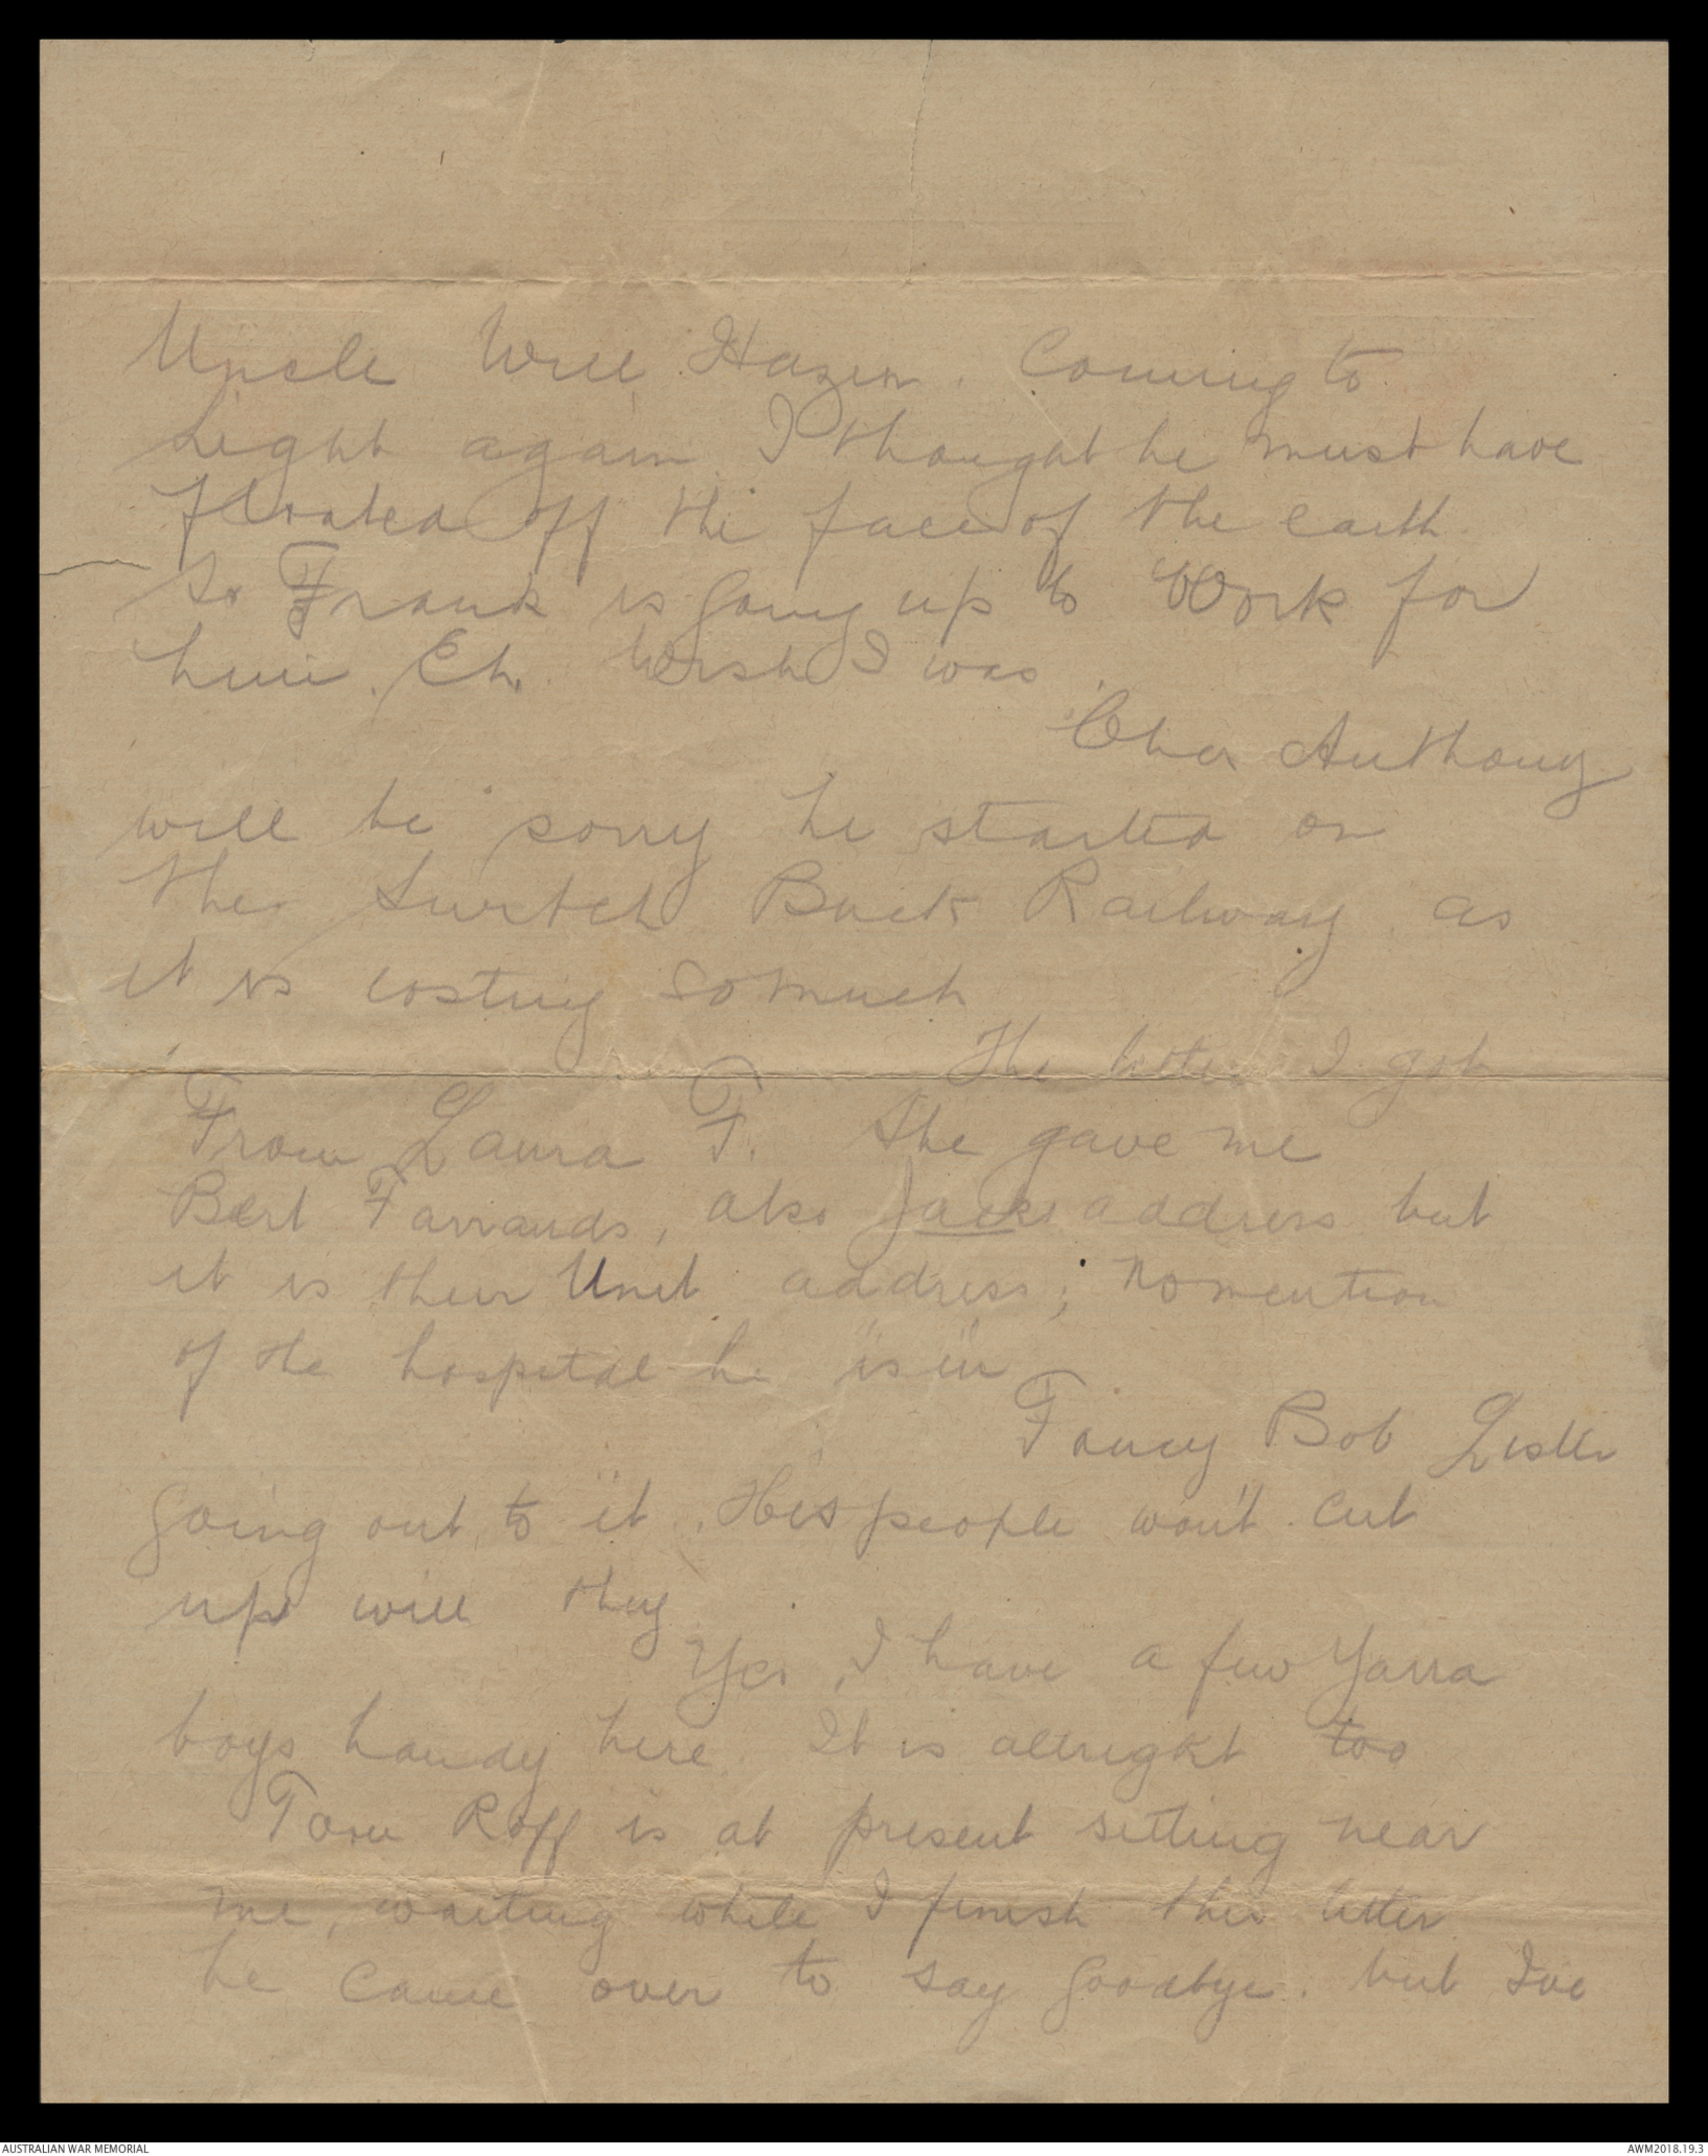 Uncle Will Hazen. Coming to
Light again. I thought he must have
floated off the face of the earth.
So Frank is going up to Work for
him. Eh. Wish I was.
Chas Anthony
will be sorry he started on
the Switch Back Railway as
it is costing so much
The letter I got
From Laura F. She gave me
Bert Farrands, also Jacks address but
it is their Unit address; no mention
of the hospital he is in
Fancy Bob Lister
going out to it. His people won't cut
up will they
Yes, I have a few Yarra
boys handy here. It is allright too
Tom Roff is at present sitting near
me, waiting while I finish this letter
he came over to say goodbye. but Ive
AUSTRALIAN WAR MEMORIAL
AWM2018.19.3